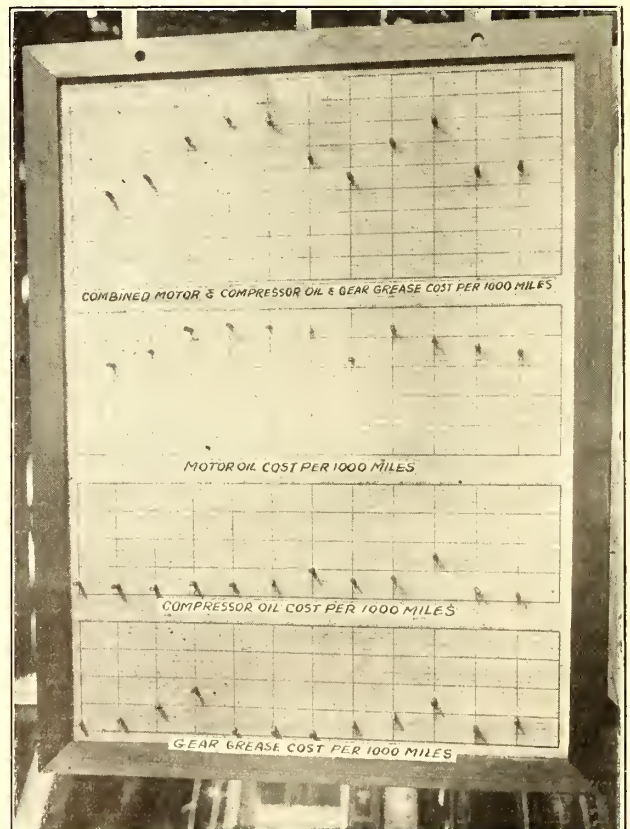 COMBINED MOTOR & COMPRESSOR OIL & GEAR GREASE COST PER 1000 MILES
MOTOR OIL COST PER 1000 MILES
COMPRESSOR OIL COST PER 1000 MILES
GEAR GREASE COST PER 1000 MILES